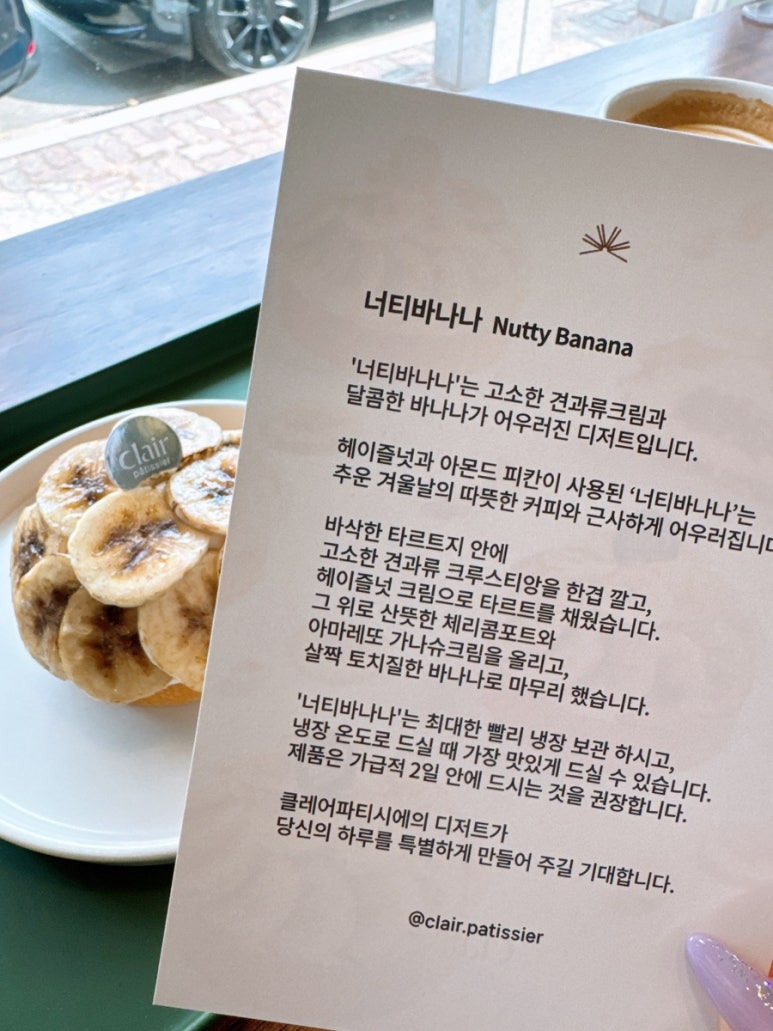 clair
pâtissier
너티바나나 Nutty Banana
'너티바나나'는 고소한 견과류크림과
달콤한 바나나가 어우러진 디저트입니다.
헤이즐넛과 아몬드 피칸이 사용된 ‘너티바나나’는
추운 겨울날의 따뜻한 커피와 근사하게 어우러집니다
바삭한 타르트지 안에
고소한 견과류 크루스티앙을 한겹 깔고,
헤이즐넛 크림으로 타르트를 채웠습니다.
그 위로 산뜻한 체리콤포트와
아마레또 가나슈크림을 올리고,
살짝 토치질한 바나나로 마무리 했습니다.
'너티바나나'는 최대한 빨리 냉장 보관 하시고,
냉장 온도로 드실 때 가장 맛있게 드실 수 있습니다.
제품은 가급적 2일 안에 드시는 것을 권장합니다.
클레어파티시에의 디저트가
당신의 하루를 특별하게 만들어 주길 기대합니다.
@clair.patissier